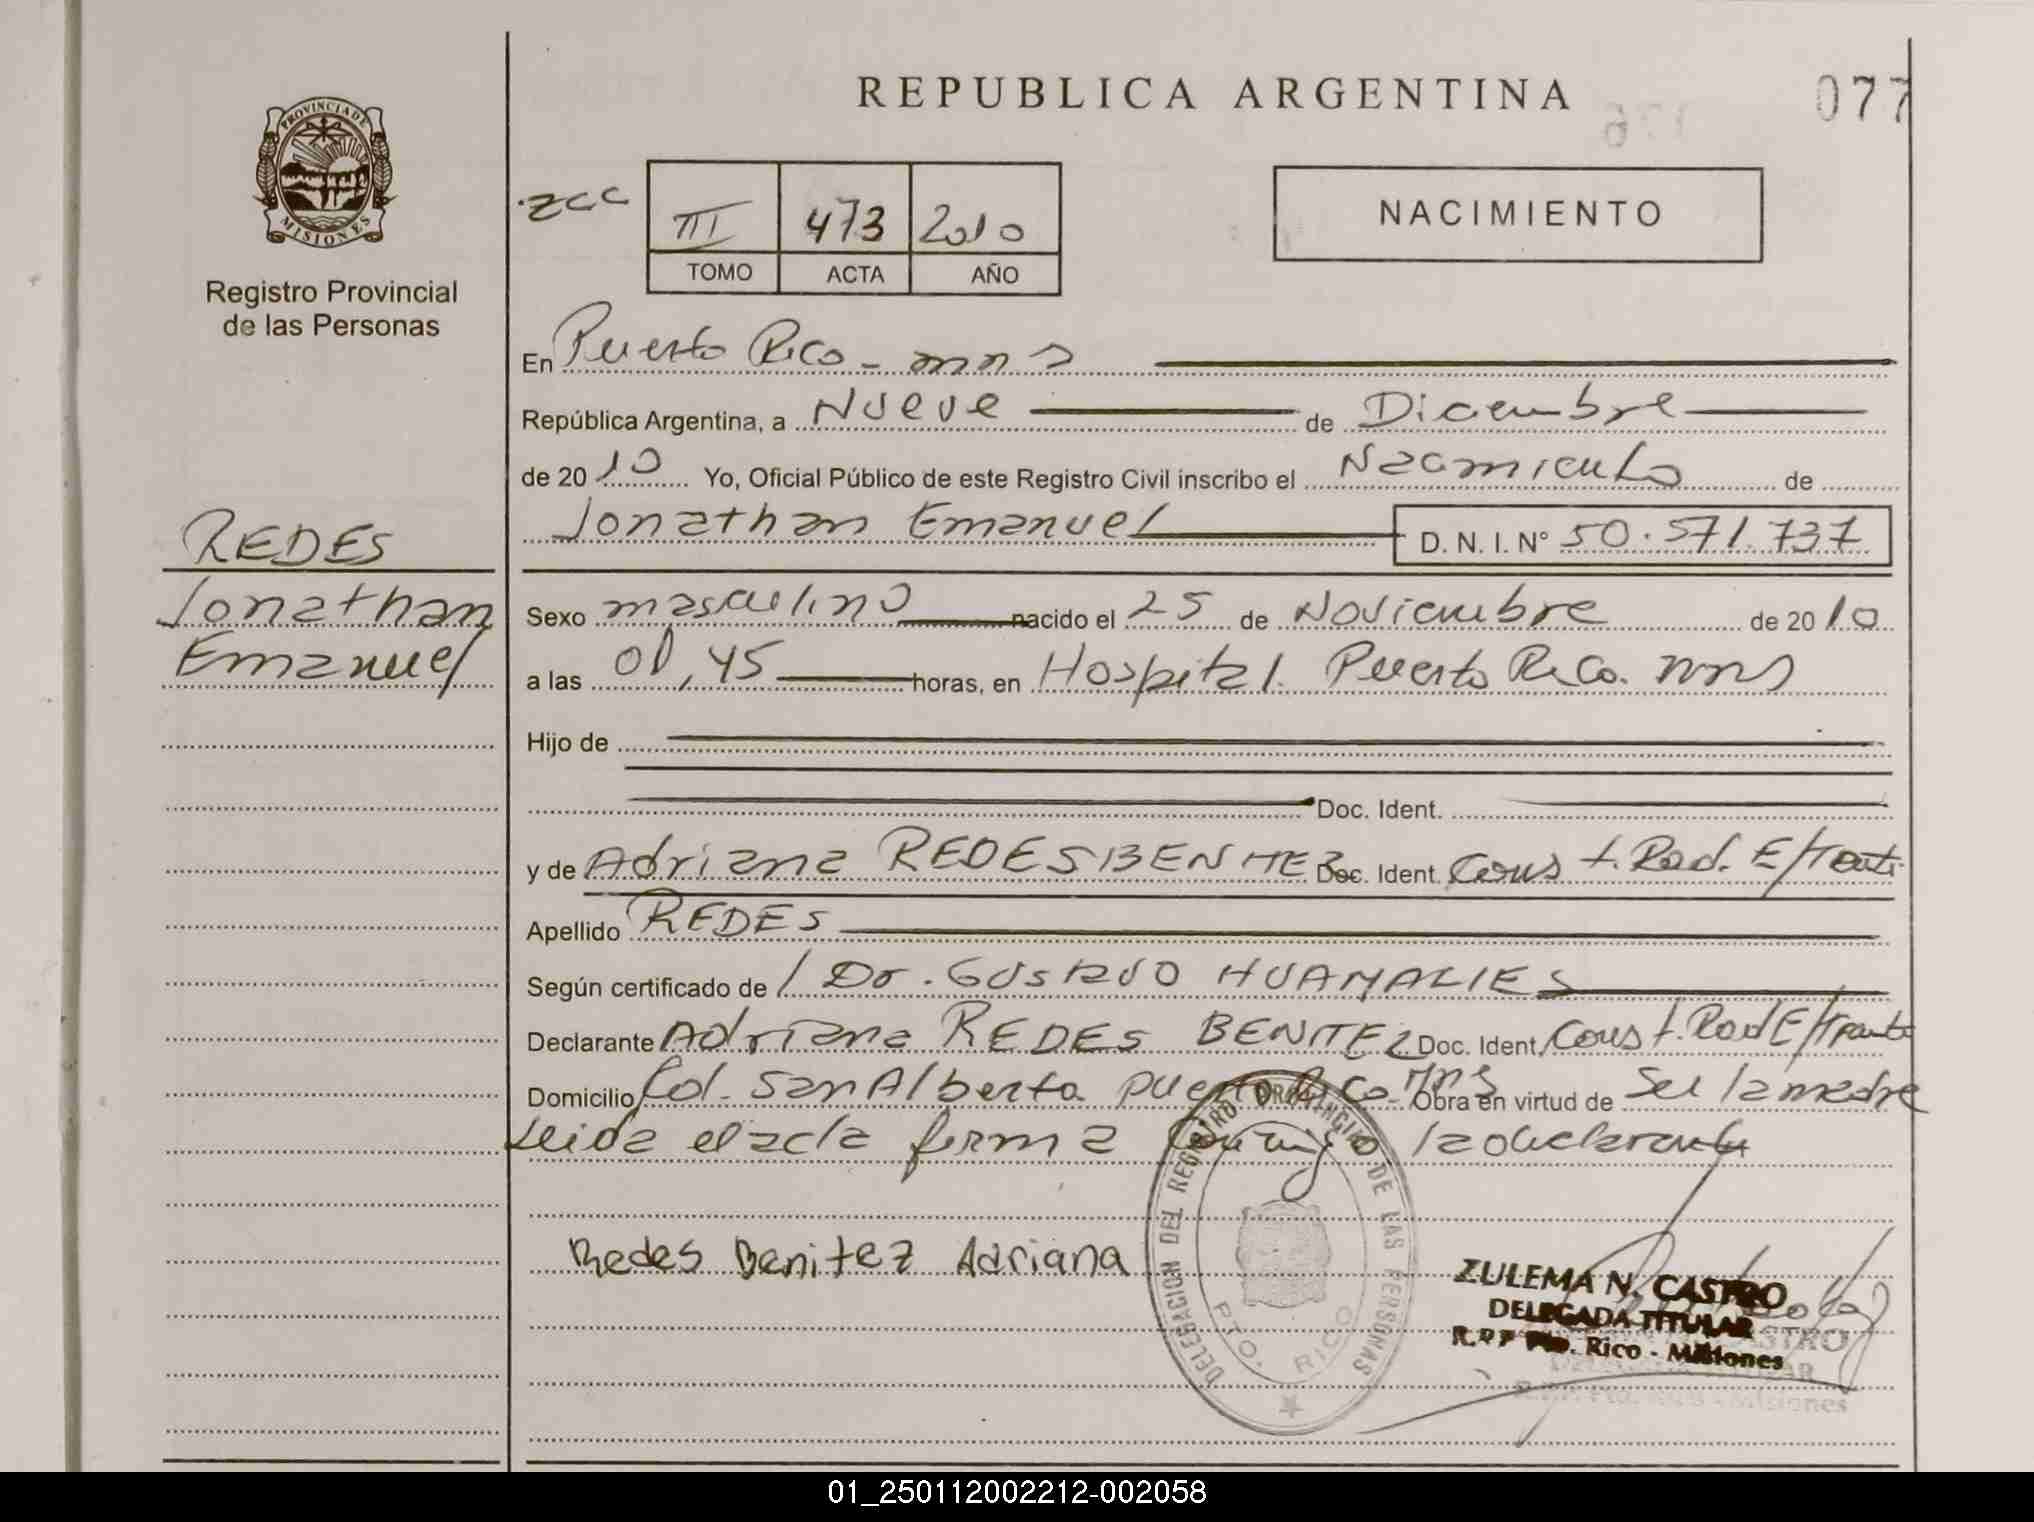 REPUBLICA ARGENTINA
077
PROVINCIA DE
MISIONES
Registro Provincial
de las Personas
zcc
III 473 2010
TOMO ACTA AÑO
NACIMIENTO
En Puerto Rico - mns
República Argentina, a Nueve de Diciembre
de 2010 Yo, Oficial Público de este Registro Civil inscribo el Nacimiento de
Jonathan Emanuel D. N. I. N° 50.571.737
REDES
Jonathan
Emanuel
Sexo masculino nacido el 25 de Noviembre de 2010
a las 01,45 horas, en Hospital. Puerto Rico. mns
Hijo de
Doc. Ident.
y de Adriana REDES BENITEZ Doc. Ident. Const. Rad. E/
Apellido REDES
Según certificado de Dr. Gustavo HUAMALIES
Declarante Adriana REDES BENITEZ Doc. Ident. Const. Rad E/
Domicilio Col. San Alberto Puerto Rico - mns Obra en virtud de ser la madre
Leida el acta firma conmigo la declarante
Redes Benitez Adriana
DELEGACION DEL REGISTRO PROVINCIAL DE LAS PERSONAS
PTO. RICO
ZULEMA N. CASTRO
DELEGADA TITULAR
R.P.P Pto. Rico - Misiones
01_250112002212-002058